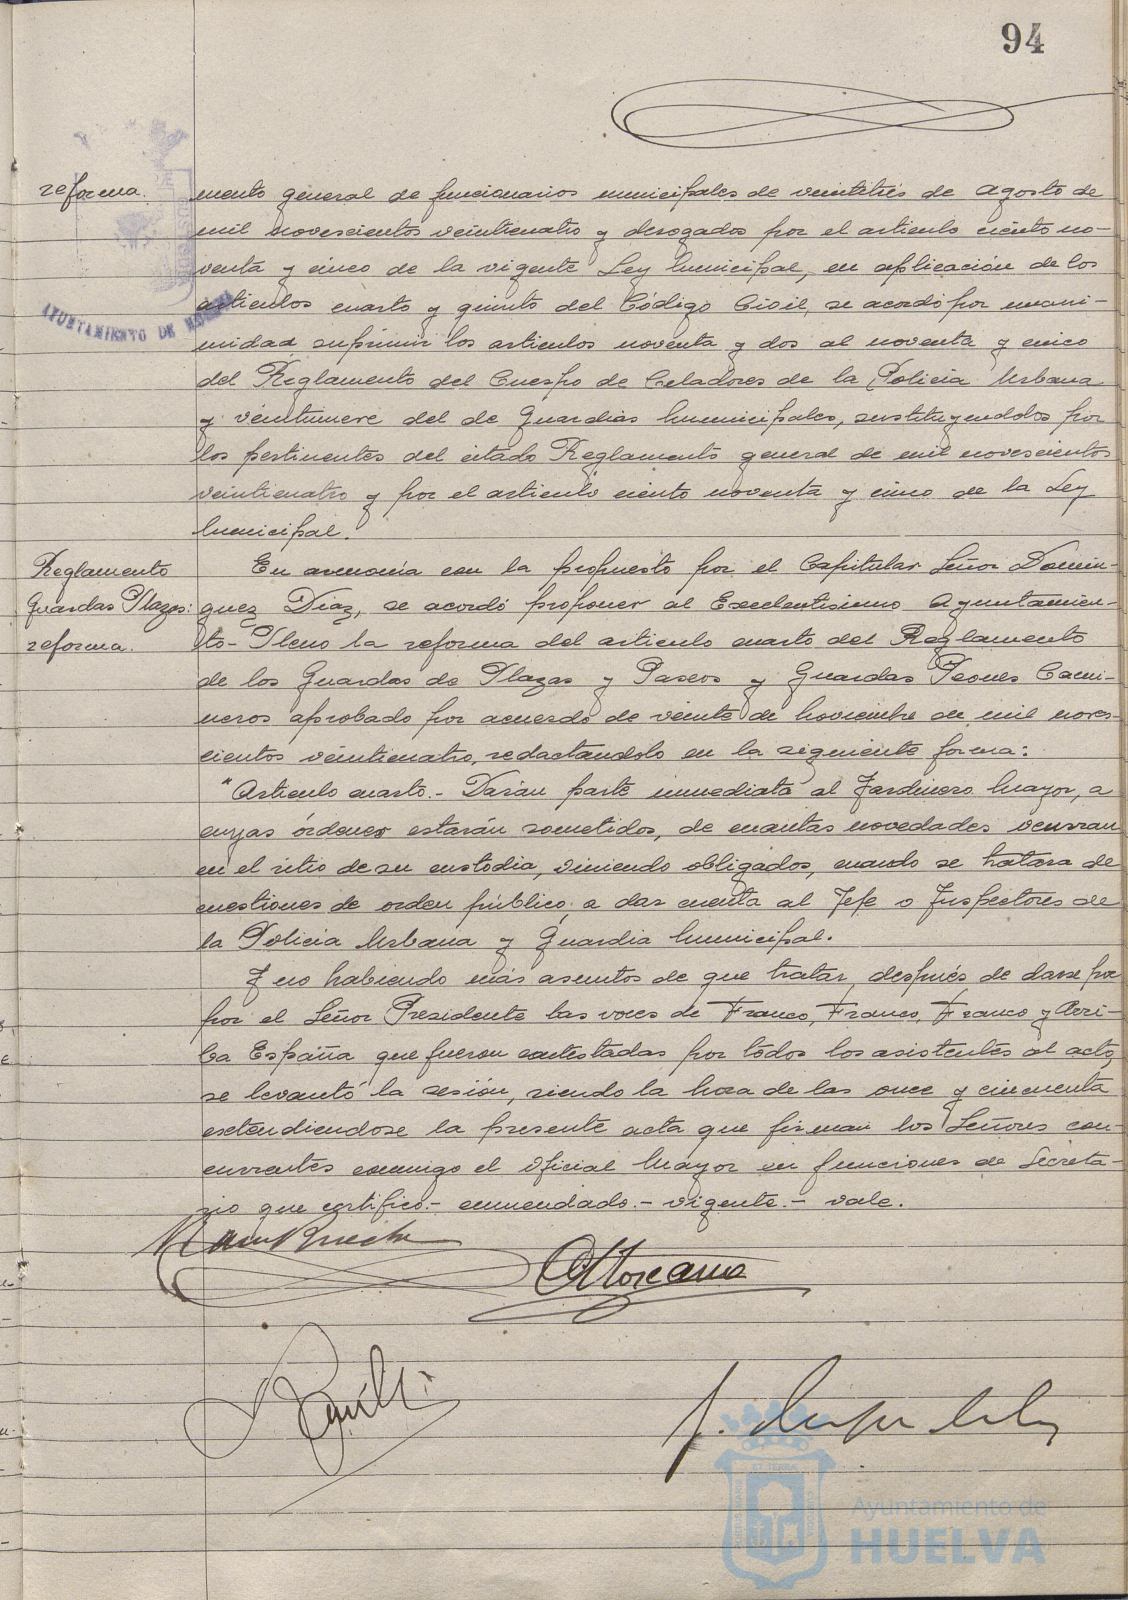 94
reforma.
mento general de funcionarios municipales de veintitrés de Agosto de
mil novescientos veinticuatro y derogados por el articulo ciento no-
venta y cinco de la vigente Ley Municipal, en aplicación de los
articulos cuarto y quinto del Código Civil, se acordó por unani-
midad suprimir los articulos noventa y dos al noventa y cinco
del Reglamento del Cuerpo de Celadores de la Policia Urbana
y veintinueve del de Guardias Municipales, sustituyendolos por
los pertinentes del citado Reglamento general de mil novescientos
veinticuatro y por el articulo ciento noventa y cinco de la Ley
Municipal.
Reglamento
Guardas Plazas:
reforma.
En armonia con la propuesto por el Capitular Señor Domin-
guez Diaz, se acordó proponer al Excelentisimo Ayuntamien-
to-Pleno la reforma del articulo cuarto del Reglamento
de los Guardas de Plazas y Paseos y Guardas Peones Cami-
neros aprobado por acuerdo de veinte de Noviembre de mil noves-
cientos veinticuatro, redactandolo en la siguiente forma:
"Articulo cuarto.- Darán parte inmediata al Jardinero Mayor, a
cuyas órdenes estarán sometidos, de cuantas novedades ocurran
en el sitio de su custodia, viniendo obligados, cuando se tratara de
cuestiones de orden público, a dar cuenta al Jefe o Inspectores de
la Policia Urbana y Guardia Municipal.
Y no habiendo más asuntos de que tratar, después de darse por
por el Señor Presidente las voces de Franco, Franco, Franco y Arri-
ba España que fueron contestadas por todos los asistentes al acto,
se levantó la sesión, siendo la hora de las once y cincuenta
extendiendose la presente acta que firman los Señores con-
currentes conmigo el Oficial Mayor en funciones de Secreta-
rio que certifico.- enmendado.- vigente.- vale.
AYUNTAMIENTO DE HUELVA
Ayuntamiento de
HUELVA